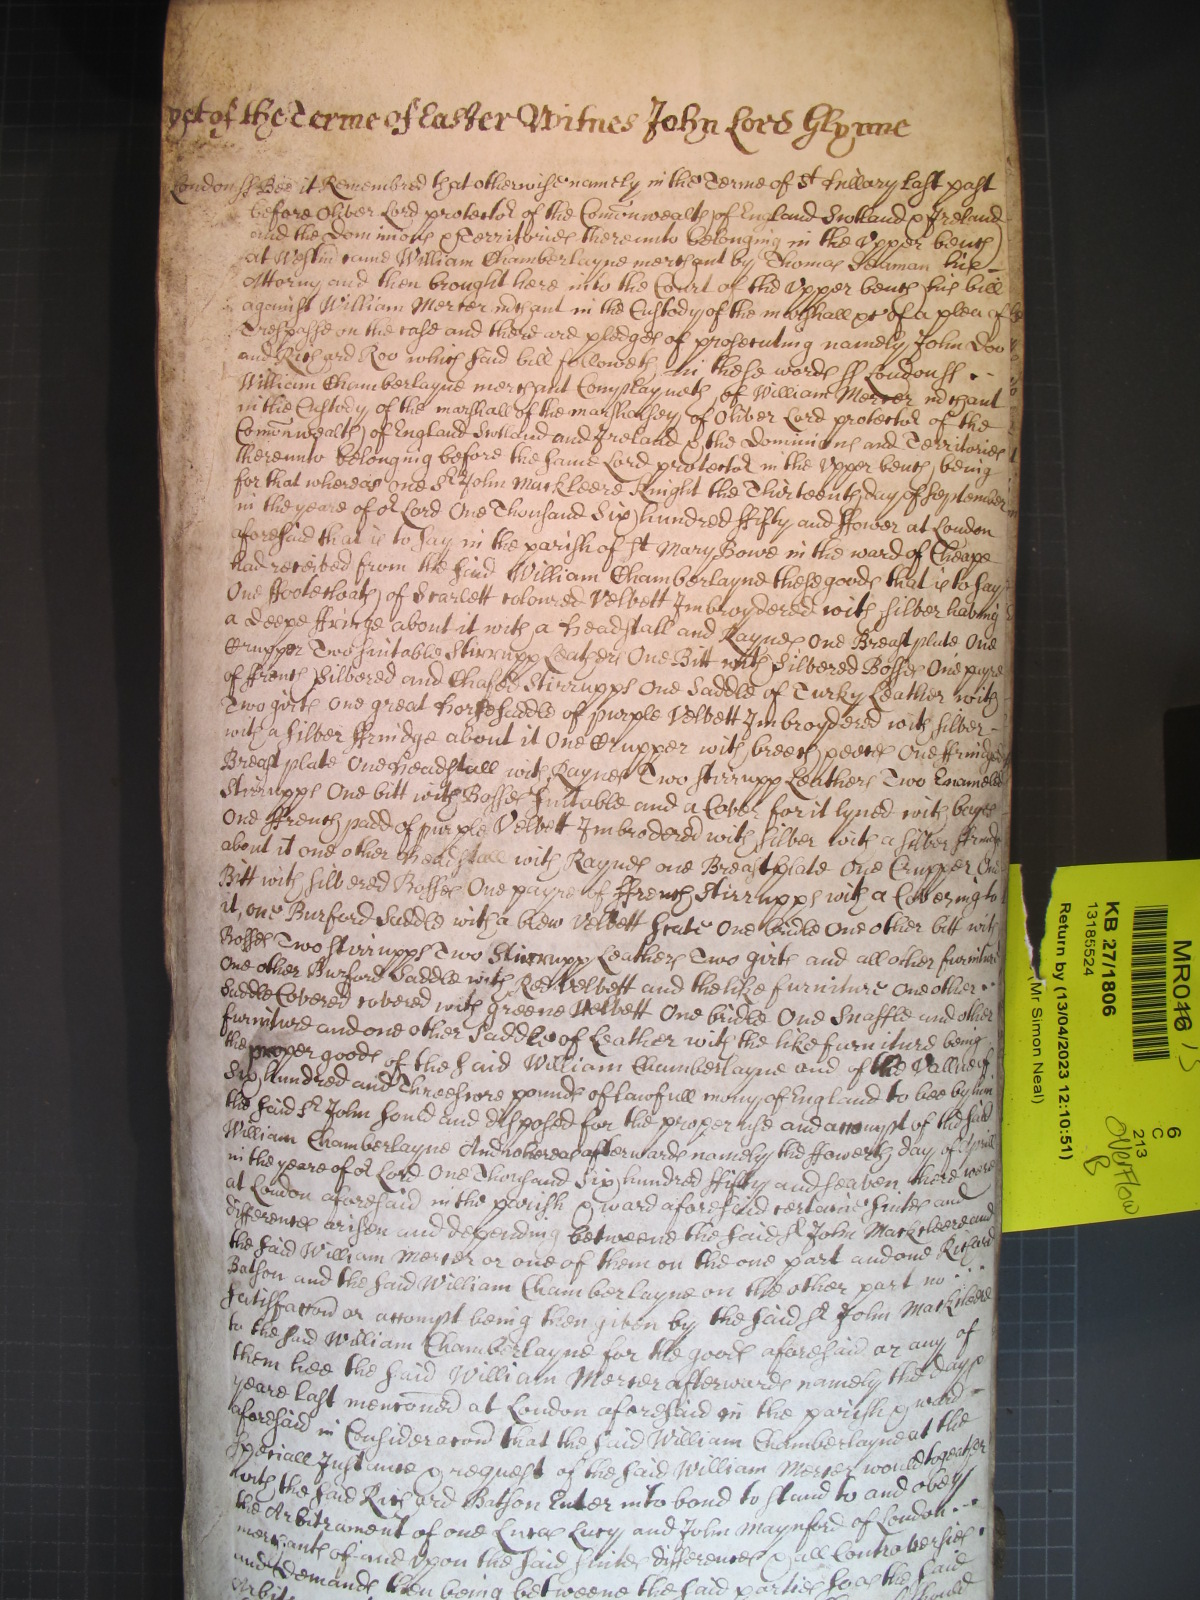 yet of the Terme of Easter Witnes John Lord Glynne
London ss Bee it Remembred that otherwise namely in the Terme of St Hillary last past
before Oliver Lord protector of the Comonwealth of England Scotland & Ireland
and the Dominions & Territories thereunto belonging in the Upper bench
at Westm came William Chamberlayne merchant by Thomas his
Attorny and then brought here into the Court of the Upper bench his bill
against William Mercer mchant in the Custody of the marshall &c of a plea of
Trespasse on the case and there are pledges of prosecuting namely John Doo
and Richard Roo which said bill followeth in these words ss London ss
William Chamberlayne merchant Complayneth of William Mercer mchant
in the Custody of the marshall of the marshalsey of Oliver Lord protector of the
Comonwealth of England Scotland and Ireland & the Dominions and Territories
thereunto belonging before the same Lord protector in the Upper bench being
for that whereas one Sr John Mackleere Knight the Thirteenth day of September
in the yeare of or Lord One Thousand Six hundred ffifty and ffower at London
aforesaid that is to say in the parish of St Mary Bowe in the ward of Cheape
had received from the said William Chamberlayne these goods that is to say
One ffootecloath of Scarlett coloured Velvett Imbroydered with silver having
a deepe ffringe about it with a headstall and Raynes One Breastplate One
Crupper Two suitable Stirrupp Leathers One Bitt with Silvered Bosses One payre
of ffrench Silvered and Chased Stirrupps One Saddle of Turky Leather with
Two girts One great horse saddle of purple Velvett Imbroydered with silver
with a silver ffrindge about it One Crupper with breech peeces One ffrindged
Breastplate One headstall with Raynes Two stirrupp Leathers Two Enameled
Stirrupps One bitt with Bosses suitable and a Cover for it lyned with bayes
One ffrench padd of purple Velvett Imbrodered with silver with a silver ffrindge
about it one other headstall with Raynes one Breastplate One Crupper One
Bitt with silvered Bosses One payre of ffrench Stirrupps with a Covering to
it, one Burford Saddle with a blew Velvett seate One bridle One other bitt with
Bosses Two stirrupps Two Stirrupp Leathers Two girts and all other furniture
One other Burford Saddle with Red Velvett and the like furniture One other
Saddle Covered covered with greene Velvett One bridle One Snaffle and other
furniture and one other Saddle of Leather with the like furniture being
the proper goods of the said William Chamberlayne and of the Vallue of
Six hundred and Threescore pounds of lawfull mony of England to bee by him
the said Sr John sould and disposed for the proper use and accompt of the said
William Chamberlayne And whereas afterwards namely the ffowerth day of Aprill
in the yeare of or Lord One Thousand Six hundred ffifty and seaven there were
at London aforesaid in the parish & ward aforesaid certaine suites and
differences arisen and depending betweene the said Sr John Mackleere and
the said William Mercer or one of them on the one part and one Richard
Batson and the said William Chamberlayne on the other part no
satisfaccon or accompt being then given by the said Sr John Mackleere
to the said William Chamberlayne for the goods aforesaid or any of
them hee the said William Mercer afterwards namely the day &
yeare last menconed at London aforesaid in the parish & ward
aforesaid in Consideracon that the said William Chamberlayne at the
speciall Instance & request of the said William Mercer would togeather
with the said Richard Batson Enter into bond to stand to and obey
the Arbitrament of one Lucas Lucy and John Maynford of London
merchants of and upon the said suites differences & all Controversies
and Demands then being betweene the said parties soe as the said
MR046
KB 27/1806
13185524
Return by (13/04/2023 12:10:51)
Mr Simon Neal)
6
C
213
Overflow
B